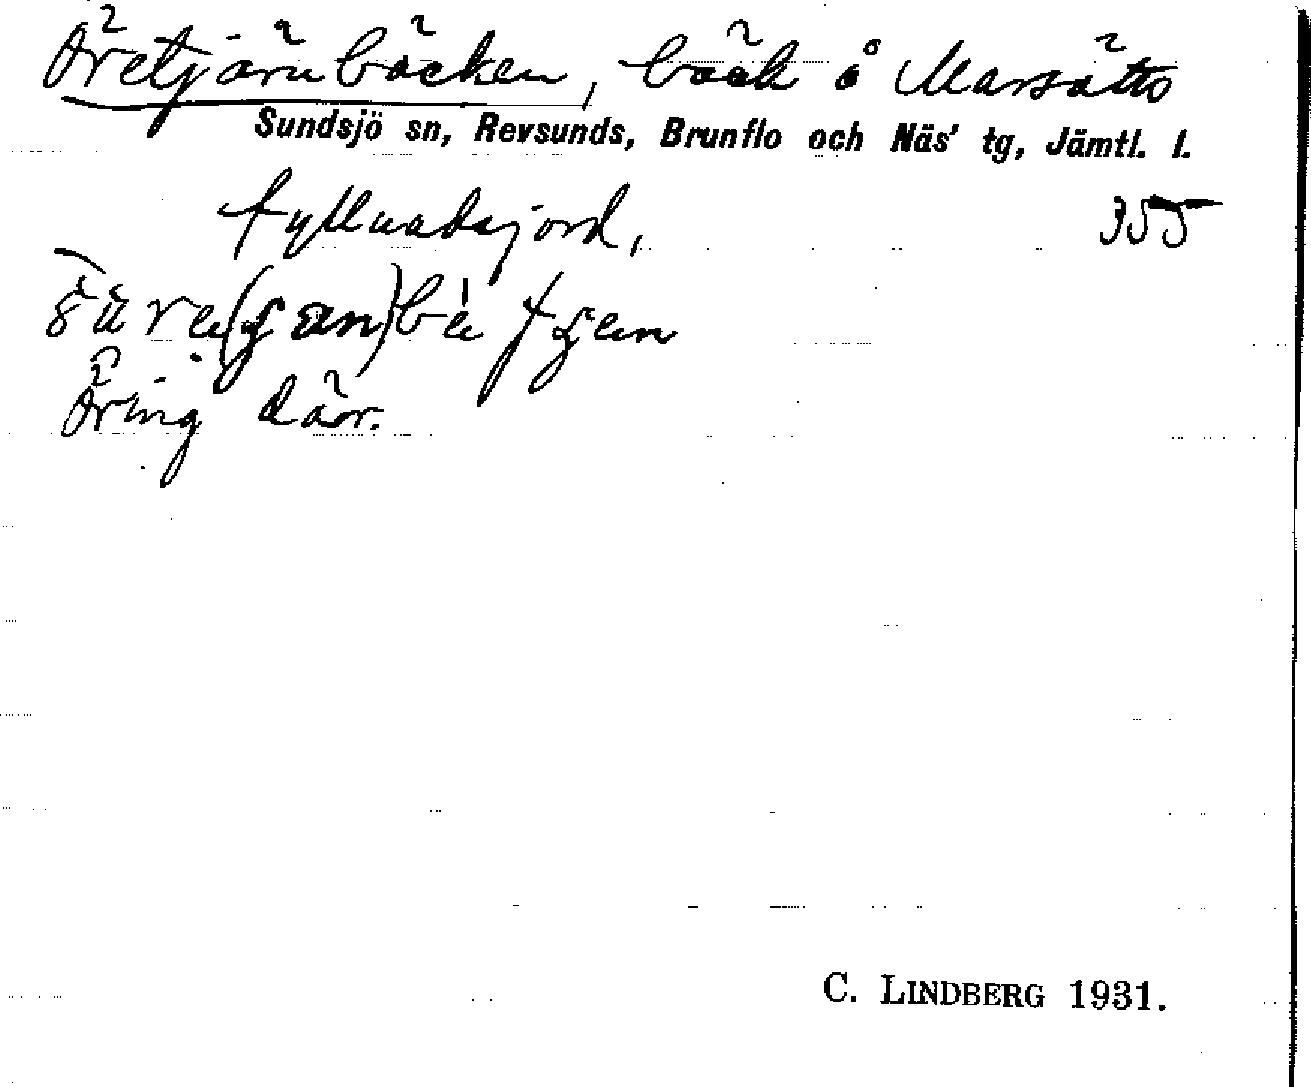 Öretjärnbäcken, bäck å Marsätts
Sundsjö sn, Revsunds, Brunflo och Näs' tg, Jämtl. l.
fyllnadsjord, 355
Öring där.
C. LINDBERG 1931.